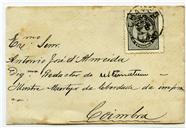 Exmo Senr.
Antonio José d'Almeida
Digmo Redactor do Ultimatum
Illustre Martyr da liberdade de impren
Coimbra